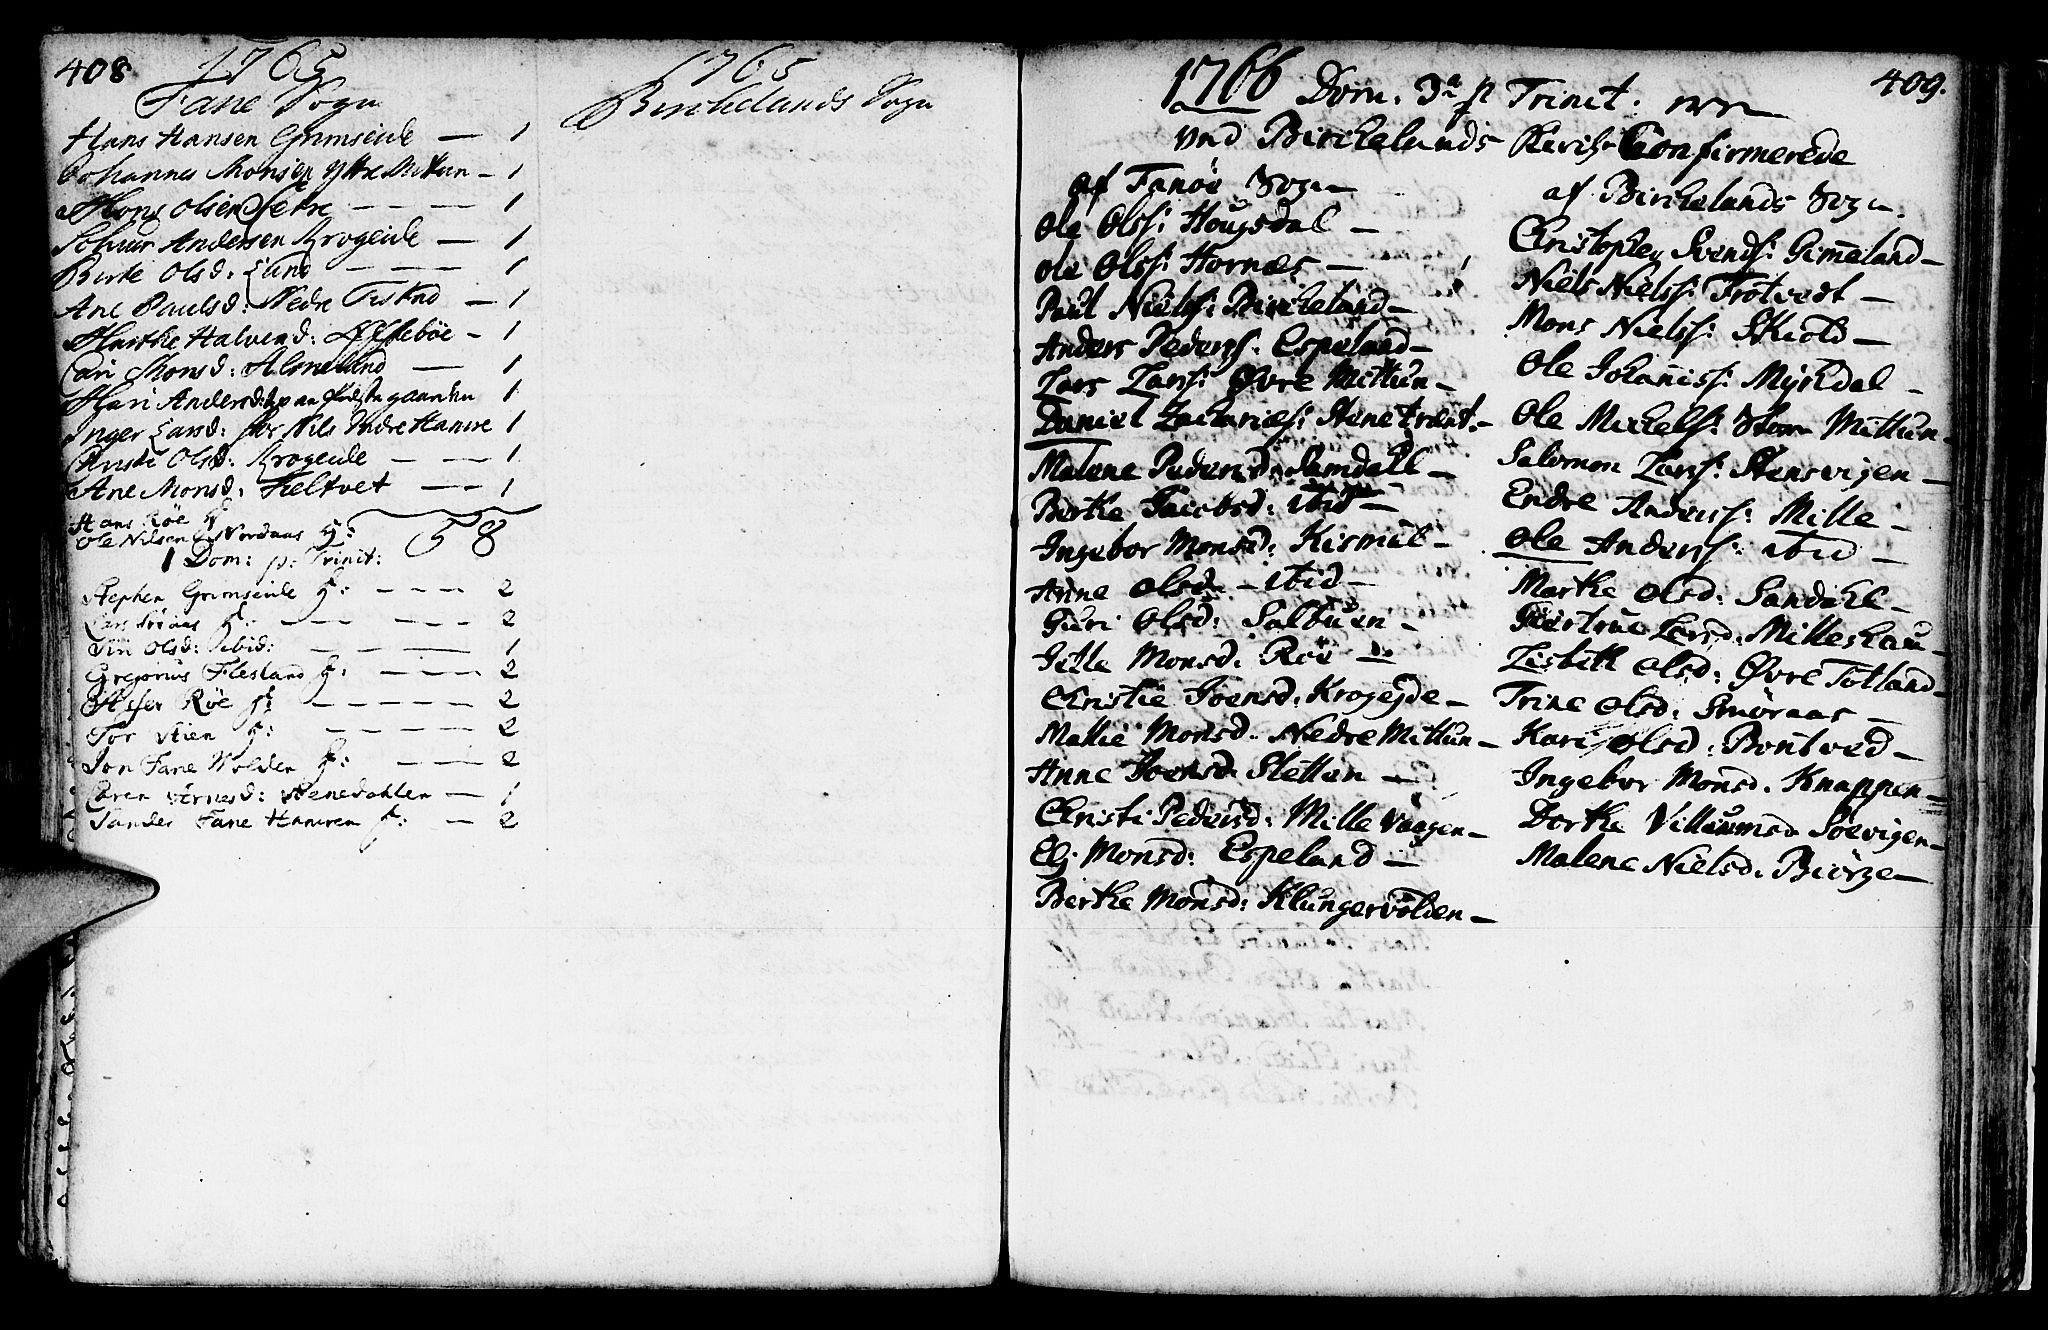 408
1765
Fane Sogn
Hans Hansen Grimseide — 1
Johannes Monsen Ytre Mitun — 1
Mons Olsen Sætre — — — 1
Sihur Andersen Krogeide — 1
Birte Olsd: Lund — — — 1
Ane Paulsd: Nedre Tistnd — 1
Marthe Halvord: — 1
Cari Monsd: — 1
Mari Andersd: paa 1
Inger Larsd: hos Nils Indre Hamre 1
Christi Olsd: Krogeide — — 1
Ane Monsd: Tieltvet — — 1
Hans Røe
Ole Nilsen Nordaas
58
1 Dom: p: Trinit:
Stephen Grimseide — — — 2
Lars — — — 2
Siri Olsd: ibid: — — — 1
Gregorius Flesland — — — 2
Røe — — — 2
Tor Stien — — — 2
Jon Fane Wolden — — 2
Caren Arnesd: Stenedahlen — 1
Sander Fane Hamren — 2
1765
Birchelands Sogn
409.
1766 Dom. 3a p Trinit:
vnd Birchelands Kirch Confirmerede
af Fanøe Sogn
Ole Olss: Hougsdal —
Ole Olss: Hornæs —
Paul Nielss: Bircheland —
Anders Pederss: Espeland —
Lars Larss: Øvre Mittun —
Daniel Zachariæss: Stenetræet. —
Malene Pedersd: Samdahl —
Berthe Jacobsd: ibid —
Ingebor Monsd: Kismul —
Anne Olsd — ibid —
Guri Olsd: Salbuen —
Jitte Monsd: Røe —
Christie Joensd: Krogejde —
Mallie Monsd: Nedre Mittun —
Anne Joensd Sletten —
Christi Pedersd: Mille Vaagen —
Elj Monsd: Espeland —
Berthe Monsd: Klungervolden —
af Birchelands Sogn.
Christopher Svends: Gimeland —
Niels Nielss: Trötvedt —
Mons Nielss: Skiold —
Ole Johanniss: Myrkdal —
Ole Michelss: Store Mittun —
Salomon Larss: Stensvigen —
Endre Anderss: Mille —
Ole Anderss: ibid —
Marthe Olsd: Sandahl —
Giertrue Larsd: Milleshau —
Lisbeth Olsd: Øvre Totland —
Trine Olsd: Smöraas —
Kari Olsd: Bontved —
Ingebor Monsd. Knappen —
Dorthe Villumsd Soevigen —
Malene Nielsd. Biörge —